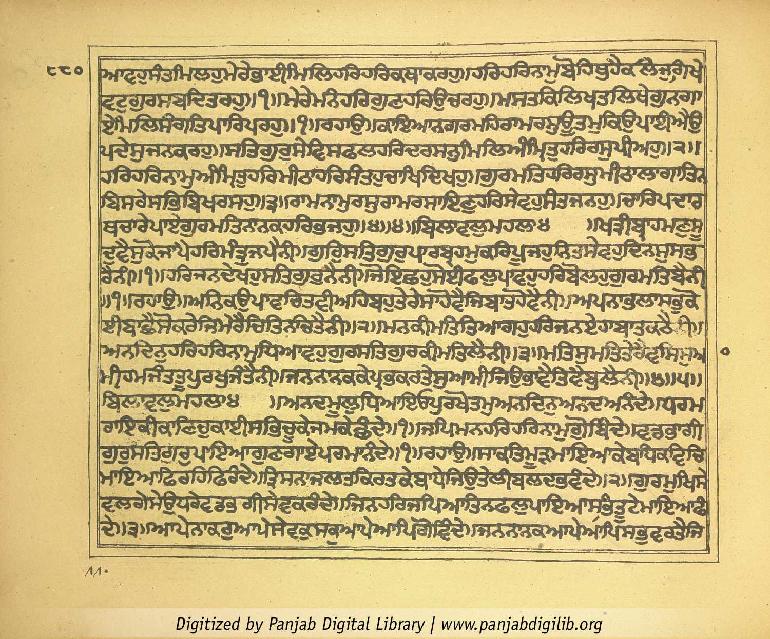 ੮੮੦
ਆਵਹੁਸੰਤਮਿਲਹੁਮੇਰੇਭਾਈਮਿਲਿਹਰਿਹਰਿਕਥਾਕਰਹੁ॥ਹਰਿਹਰਿਨਾਮੁਬੋਹਿਥੁਹੈਕਲਜੁਗਿਖੇ
ਵਟੁਗੁਰਸਬਦਿਤਰਹੁ॥੧॥ਮੇਰੇਮਨਿਹਰਿਗੁਣਹਰਿਉਚਰਹੁ॥ਮਸਤਕਿਲਿਖਤਲਿਖੇਗੁਨਗਾ
ਏਮਿਲਿਸੰਗਤਿਪਾਰਿਪਰਹੁ॥੧॥ਰਹਾਉ॥ਕਾਇਆਨਗਰਮਹਿਰਾਮਰਸੁਊਤਮੁਕਿਉਪਾਈਐਉ
ਪਦੇਸੁਜਨਕਰਹੁ॥ਸਤਿਗੁਰੁਸੇਵਿਸਫਲਹਰਿਦਰਸਨੁਮਿਲਿਅੰਮ੍ਰਿਤੁਹਰਿਰਸੁਪੀਅਹੁ॥੨॥
ਹਰਿਹਰਿਨਾਮੁਅੰਮ੍ਰਿਤੁਹਰਿਮੀਠਾਹਰਿਸੰਤਹੁਚਾਖਿਦਿਖਹੁ॥ਗੁਰਮਤਿਹਰਿਰਸੁਮੀਠਾਲਾਗਾਤਿਨ
ਬਿਸਰੇਸਭਿਬਿਖਰਸਹੁ॥੩॥ਰਾਮਨਾਮੁਰਸੁਰਾਮਰਸਾਇਣੁਹਰਿਸੇਵਹੁਸੰਤਜਨਹੁ॥ਚਾਰਿਪਦਾਰ
ਥਚਾਰੇਪਾਏਗੁਰਮਤਿਨਾਨਕਹਰਿਭਜਹੁ॥੪॥੪॥ਬਿਲਾਵਲੁਮਹਲਾ੪ ॥ਖਤ੍ਰੀਬ੍ਰਾਹਮਣੁਸੂ
ਦੁਵੈਸੁਕੋਜਾਪੈਹਰਿਮੰਤ੍ਰੁਜਪੈਨੀ॥ਗੁਰੁਸਤਿਗੁਰੁਪਾਰਬ੍ਰਹਮੁਕਰਿਪੂਜਹੁਨਿਤਸੇਵਹੁਦਿਨਸੁਸਭ
ਰੈਨੀ॥੧॥ਹਰਿਜਨਦੇਖਹੁਸਤਿਗੁਰੁਨੈਨੀ॥ਜੋਇਛਹੁਸੋਈਫਲੁਪਾਵਹੁਹਰਿਬੋਲਹੁਗੁਰਮਤਿਬੈਨੀ
॥੧॥ਰਹਾਉ॥ਅਨਿਕਉਪਾਵਚਿਤਵੀਅਹਿਬਹੁਤੇਰੇਸਾਹੋਵੈਜਿਬਾਤਹੋਵੈਨੀ॥ਅਪਨਾਭਲਾਸਭੁਕੋ
ਈਬਾਛੈਸੋਕਰੇਜਿਮੇਰੈਚਿਤਿਨਚਿਤੈਨੀ॥੨॥ਮਨਕੀਮਤਿਤਿਆਗਹੁਹਰਿਜਨਏਹਾਬਾਤਕਠੈਨੀ॥
ਅਨਦਿਨੁਹਰਿਹਰਿਨਾਮੁਧਿਆਵਹੁਗੁਰਸਤਿਗੁਰਕੀਮਤਿਲੈਨੀ॥੩॥ਮਤਿਸੁਮਤਿਤੇਰੈਵਸਿਸੁਆ
ਮੀਹਮਜੰਤਤੂਪੁਰਖੁਜੰਤੈਨੀ॥ਜਨਨਾਨਕਕੇਪ੍ਰਭਕਰਤੇਸੁਆਮੀਜਿਉਭਾਵੈਤਿਵੈਬੁਲੈਨੀ॥੪॥੫॥
ਬਿਲਾਵਲੁਮਹਲਾ੪ ॥ਅਨਦਮੂਲੁਧਿਆਇਓਪੁਰਖੋਤਮੁਅਨਦਿਨੁਅਨਦਅਨੰਦੇ॥ਧਰਮ
ਰਾਇਕੀਕਾਣਿਚੁਕਾਈਸਭਿਚੂਕੇਜਮਕੇਛੰਦੇ॥੧॥ਜਪਿਮਨਹਰਿਹਰਿਨਾਮੁਗੋੁਬਿੰਦੇ॥ਵਡਭਾਗੀ
ਗੁਰੁਸਤਿਗੁਰੁਪਾਇਆਗੁਣਗਾਏਪਰਮਾਨੰਦੇ॥੧॥ਰਹਾਉ॥ਸਾਕਤਮੂੜਮਾਇਆਕੇਬਧਿਕਵਿਚਿ
ਮਾਇਆਫਿਰਹਿਫਿਰੰਦੇ॥ਤ੍ਰਿਸਨਾਜਲਤਕਿਰਤਕੇਬਾਧੇਜਿਉਤੇਲੀਬਲਦਭਵੰਦੇ॥੨॥ਗੁਰਮੁਖਿਸੇ
ਵਲਗੇਸੇਉਧਰੇਵਡਭਾਗੀਸੇਵਕਰੰਦੇ॥ਜਿਨਹਰਿਜਪਿਆਤਿਨਫਲੁਪਾਇਆਸਭਿਤੂਟੇਮਾਇਆਫੰ
ਦੇ॥੩॥ਆਪੇਠਾਕੁਰੁਆਪੇਸੇਵਕੁਸਭੁਆਪੇਆਪਿਗੋਵਿੰਦੇ॥ਜਨਨਾਨਕਆਪੇਆਪਿਸਭੁਵਰਤੈਜਿ
Digitized by Panjab Digital Library | www.panjabdigilib.org